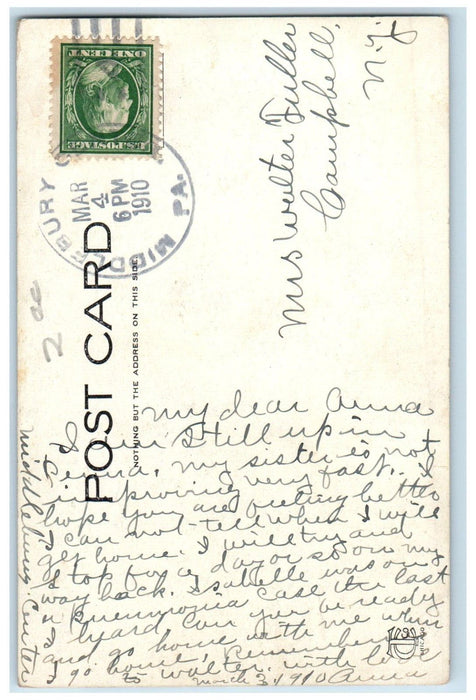 U.S. POSTAGE
ONE CENT
MIDDLEBURY
PA.
MAR
4
6 PM
1910
POST CARD
NOTHING BUT THE ADDRESS ON THIS SIDE
Mrs Walter Fuller
Campbell,
N. Y
2 ce
my dear Anna
I am Still up in
Penna. my sister is not
improving very fast. I
hope you are feeling better
I can not tell when I will
get home. I will try and
stop for a day or so on my
way back. Isabelle was on
a pneumonia case the last
I heard Can you be ready
and go home with me when
I go home, Remember me
to Walter. with love
march 3, 1910 Anna
middlebury Center
CHICAGO